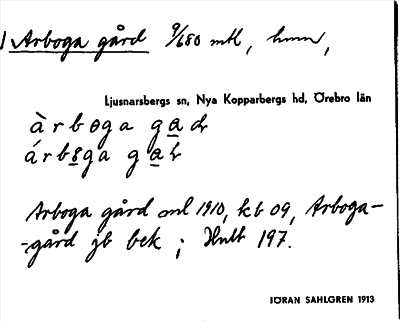 Arboga gård 9/680 mtl, hmn,
Ljusnarsbergs sn, Nya Kopparbergs hd, Örebro län
àrboga gad
árboga ga
Arboga gård ml 1910, kb 09, Arboga-
-gård jb bek; Hult 197.
JÖRAN SAHLGREN 1913